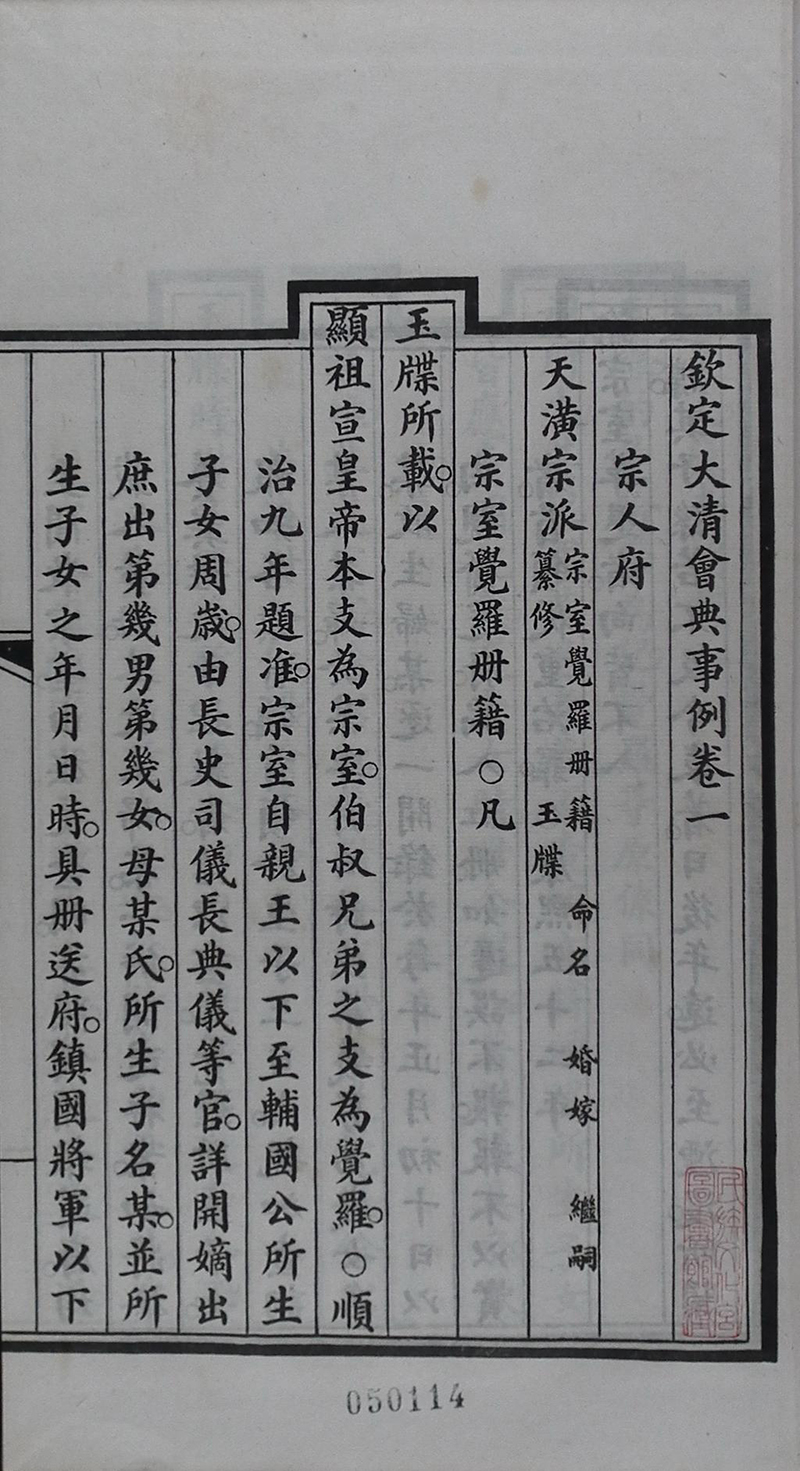 欽定大清會典事例卷一
宗人府
天潢宗派 宗室覺羅册籍 命名 婚嫁 繼嗣
纂修 玉牒
宗室覺羅册籍○凡
玉牒所載。以
顯祖宣皇帝本支為宗室。伯叔兄弟之支為覺羅。○順
治九年題准。宗室自親王以下至輔國公所生
子女周歲。由長史司儀長典儀等官。詳開嫡出
庶出第幾男第幾女。母某氏。所生子名某。並所
生子女之年月日時。具册送府。鎮國將軍以下
民族文化宮
圖書館藏
050114